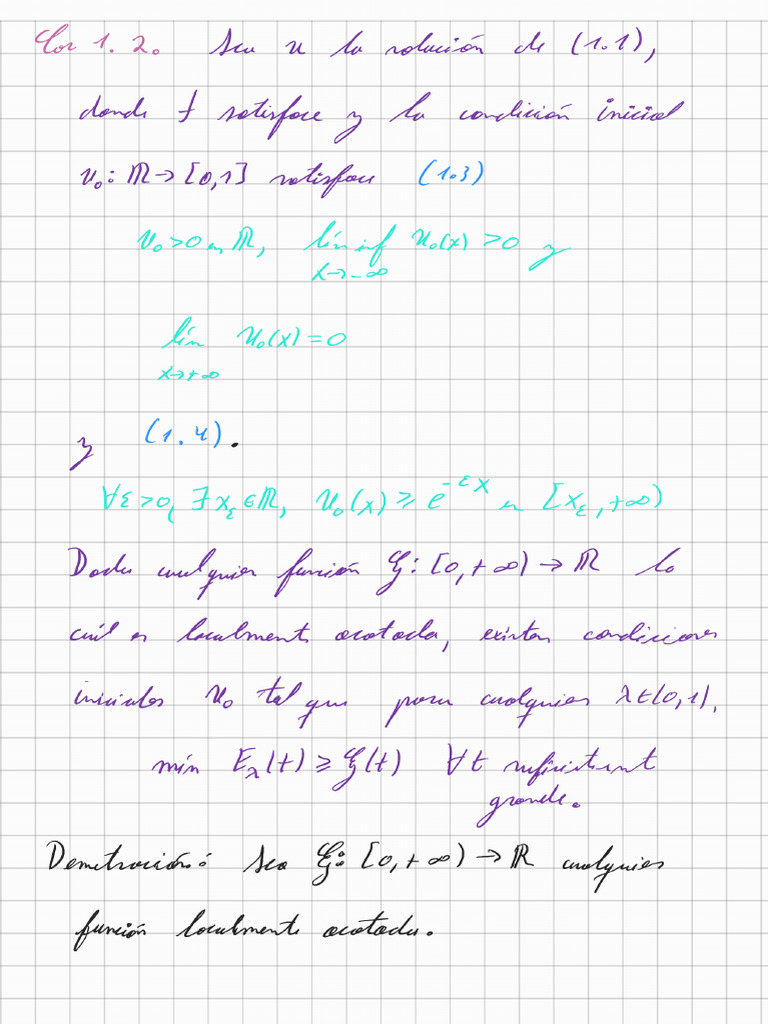 Cor 1.2. Sea u la solución de (1.1),
donde f satisface y la condición inicial
u₀: ℝ→[0,1] satisface (1.3)
u₀>0 en ℝ, lím inf u₀(x) >0 y
x→-∞
lím u₀(x)=0
x→+∞
y (1.4).
∀ε>0, ∃ x_ε∈ℝ, u₀(x) ≥ e^{-εx} en [x_ε,+∞)
Dada cualquier función ξ: [0,+∞) → ℝ la
cuál es localmente acotada, existen condiciones
iniciales u₀ tal que para cualquier λ∈(0,1),
mín E_λ(t) ≥ ξ(t) ∀t
grande.
Demostración: Sea ξ: [0,+∞) → ℝ cualquier
función localmente acotada.